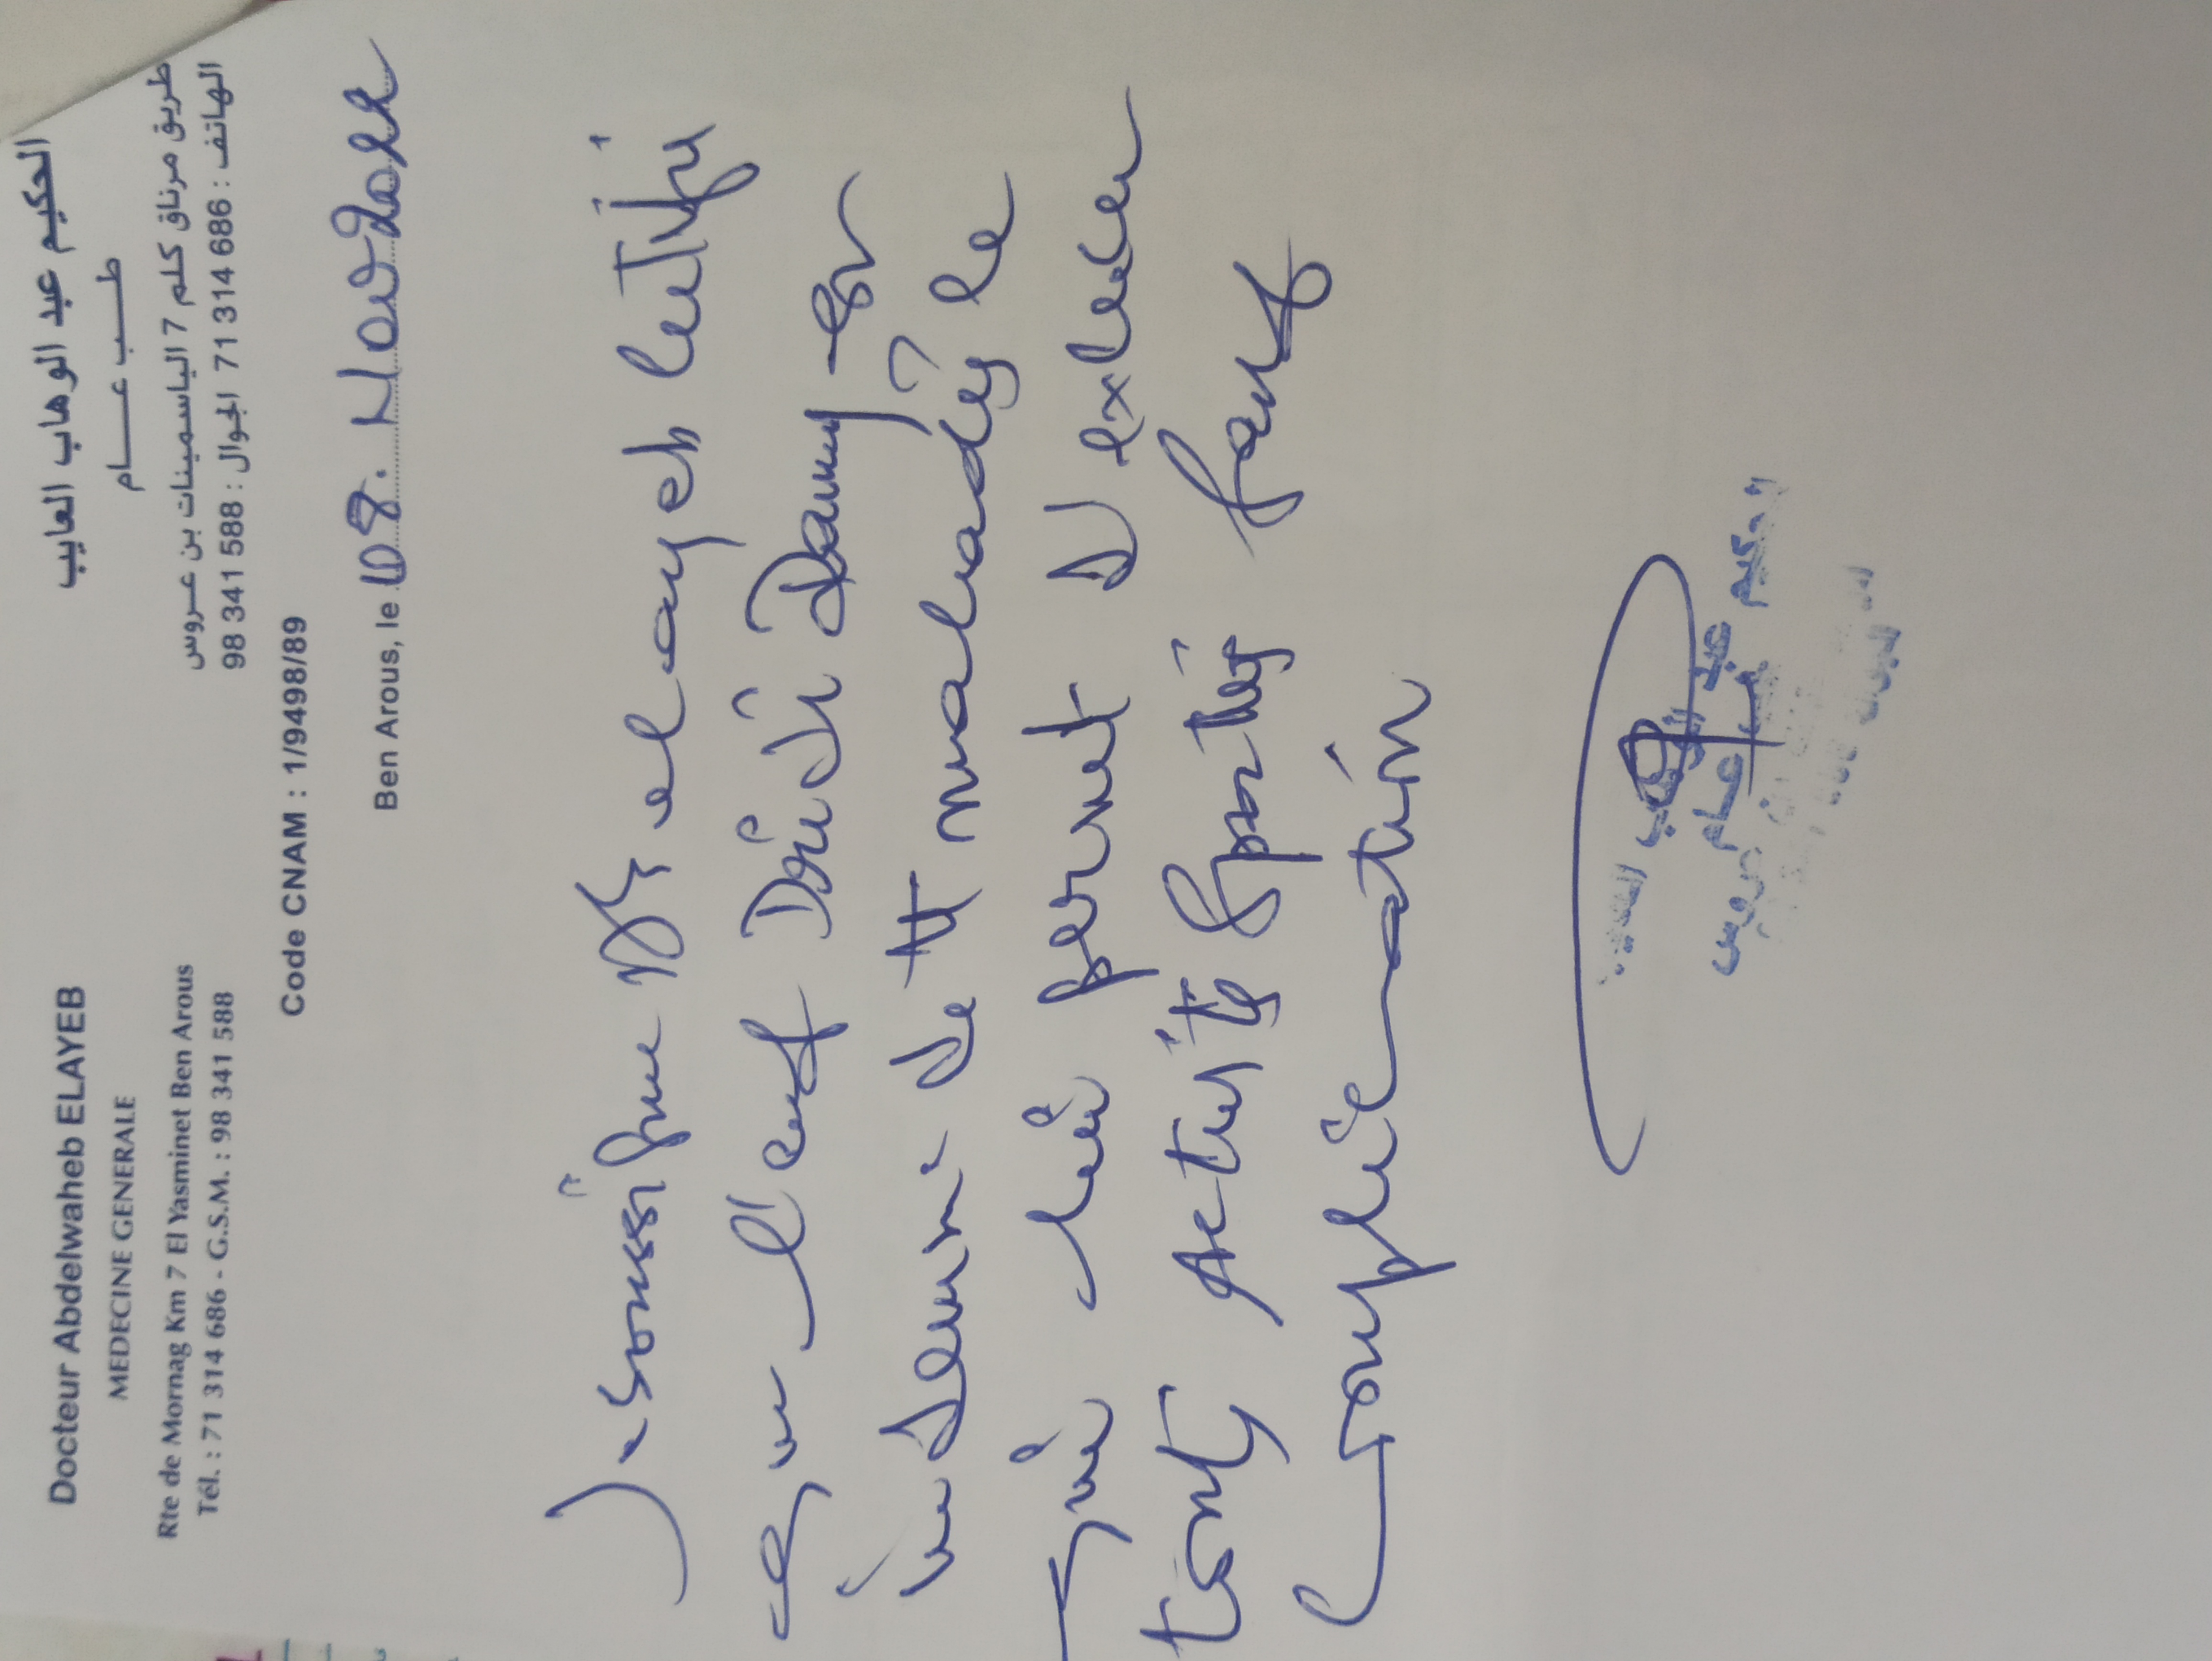 Docteur Abdelwaheb ELAYEB
MEDECINE GENERALE
Rte de Mornag Km 7 El Yasminet Ben Arous
Tél. : 71 314 686 - G.S.M. : 98 341 588
الحكيم عبد الوهاب العايب
طـــب عـــــام
طريق مرناق كلم 7 الياسمينات بن عـروس
الهاتف : 686 314 71 الجوال : 588 341 98
Code CNAM : 1/9498/89
Ben Arous, le 08. Nov
Je soussigne Dr elayeb certifie
que l'enf Dridi
indemne de tt maladie
qui lui permet d exercer
tont Activite Sportive sans
Complication
الحكيم عبد
عـــام